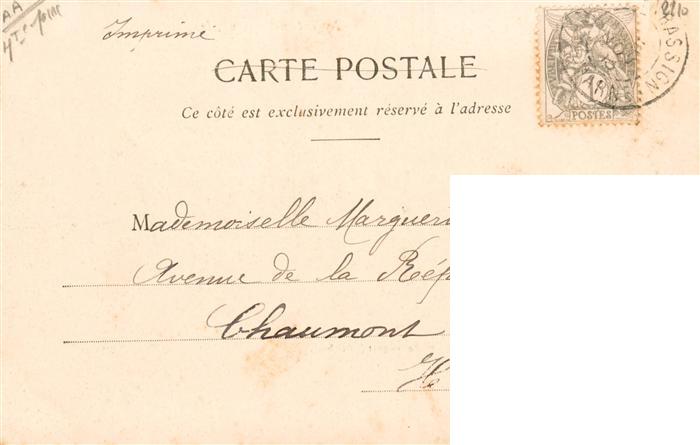 AA
2210
Imprimé
CARTE POSTALE
Ce côté est exclusivement réservé à l'adresse
POSTES
MARNE
Mademoiselle Margueri
Avenue de la Rép
Chaumont
H